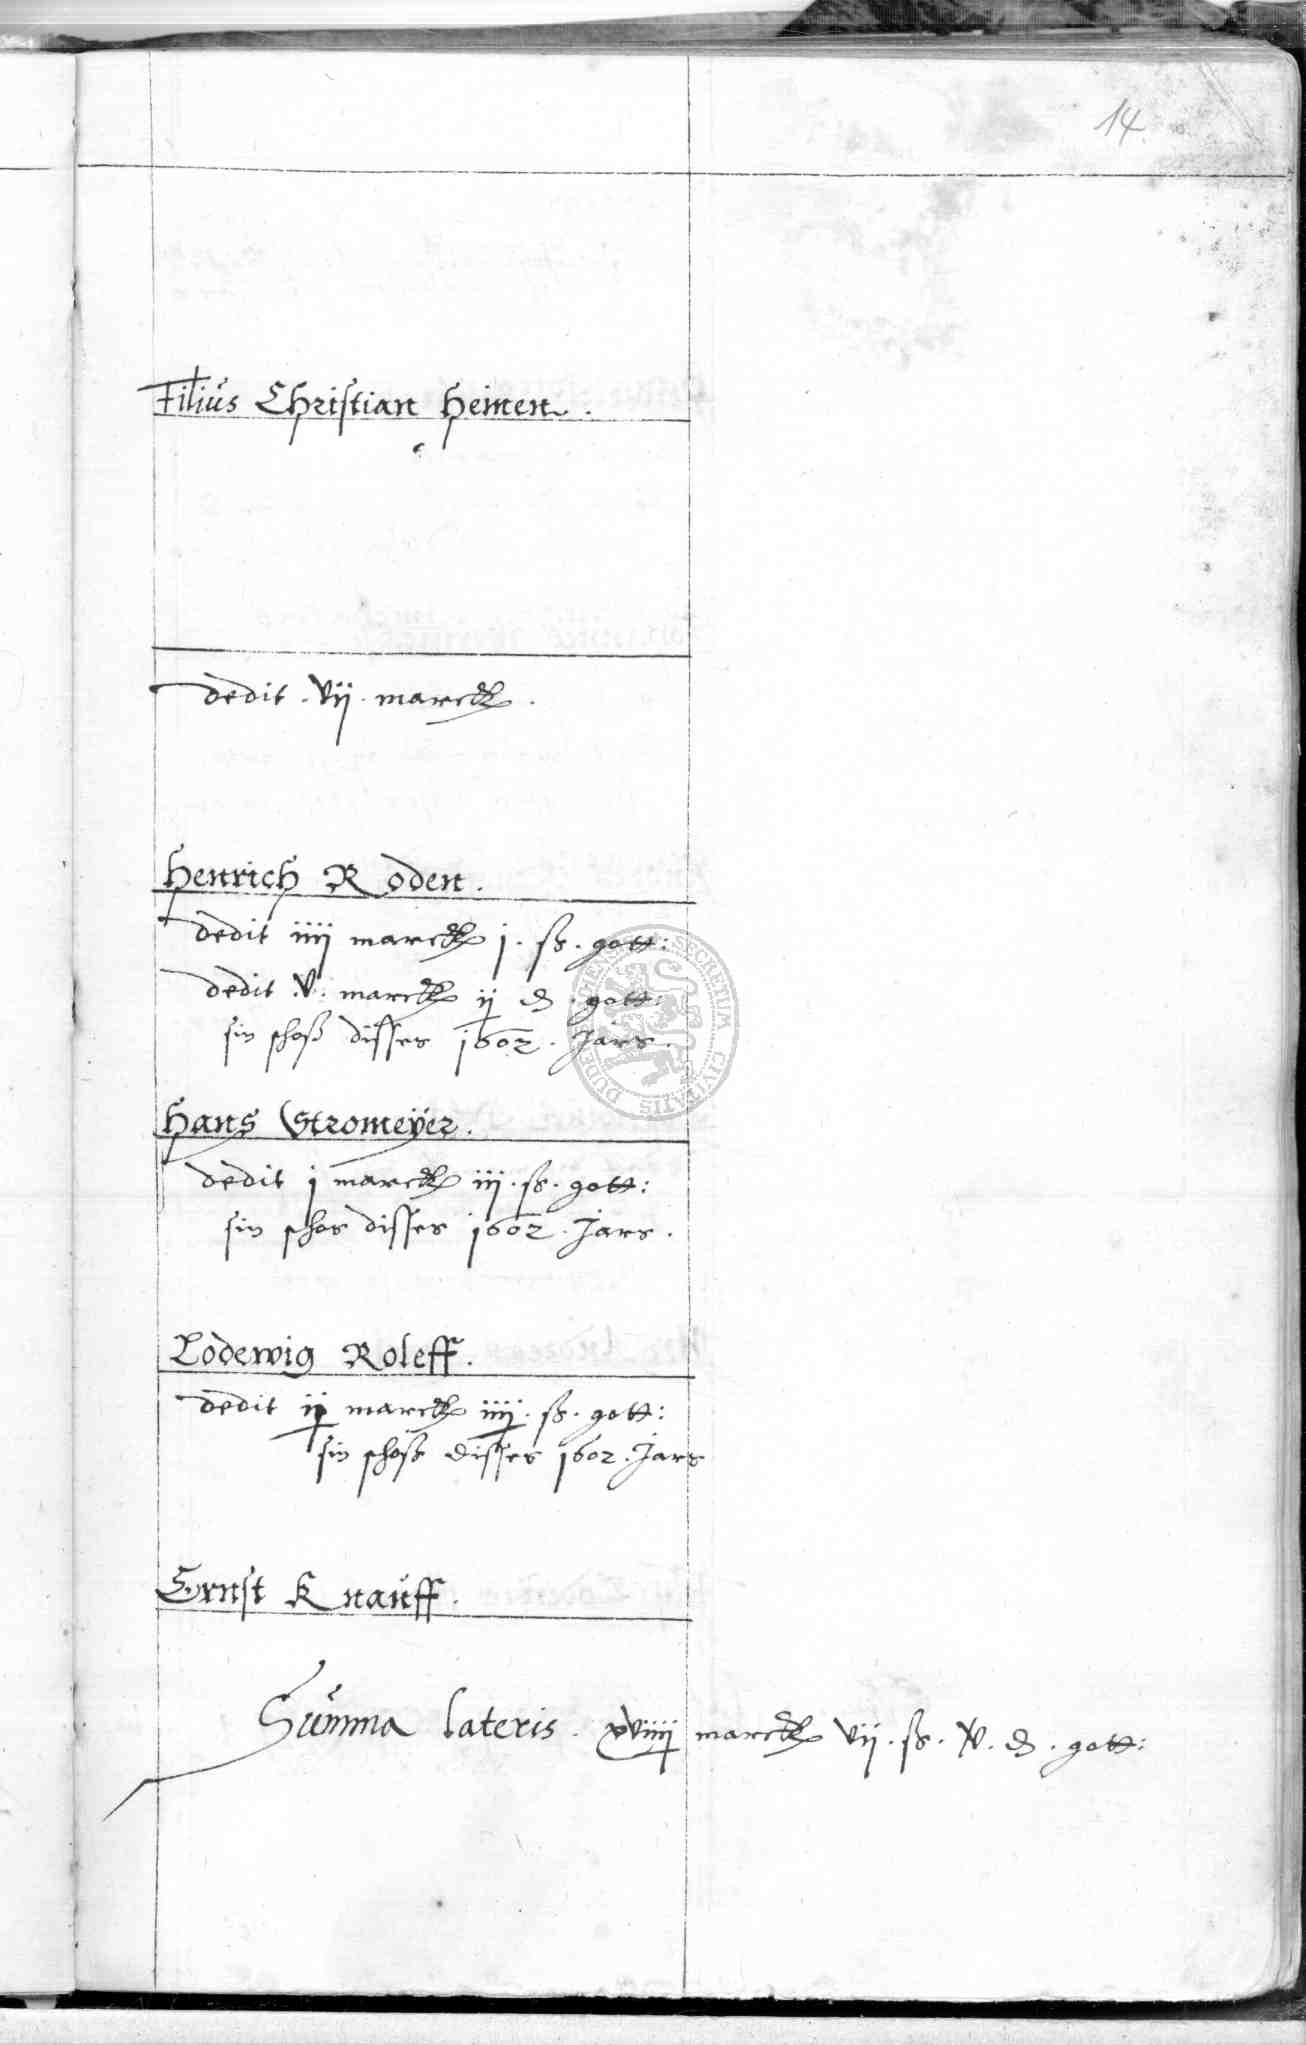 14
Filius Christian Heinen.
dedit . vij . marck .
Henrich Roden .
dedit iiij marck j . ß . gott:
dedit . v . marck ij ₰ . gott:
sin schoß disses 1602 . Jars .
Hans Stromeyer .
dedit j marck iij . ß . gott:
sin schos disses 1602 . Jars .
Lodewig Roleff .
dedit ij marck iiij . ß . gott:
sin schoß disses 1602 . Jars
Ernst Knauff .
Summa lateris . xviiij marck vij . ß . v . ₰ . gott:
SECRETUM CIVITATIS